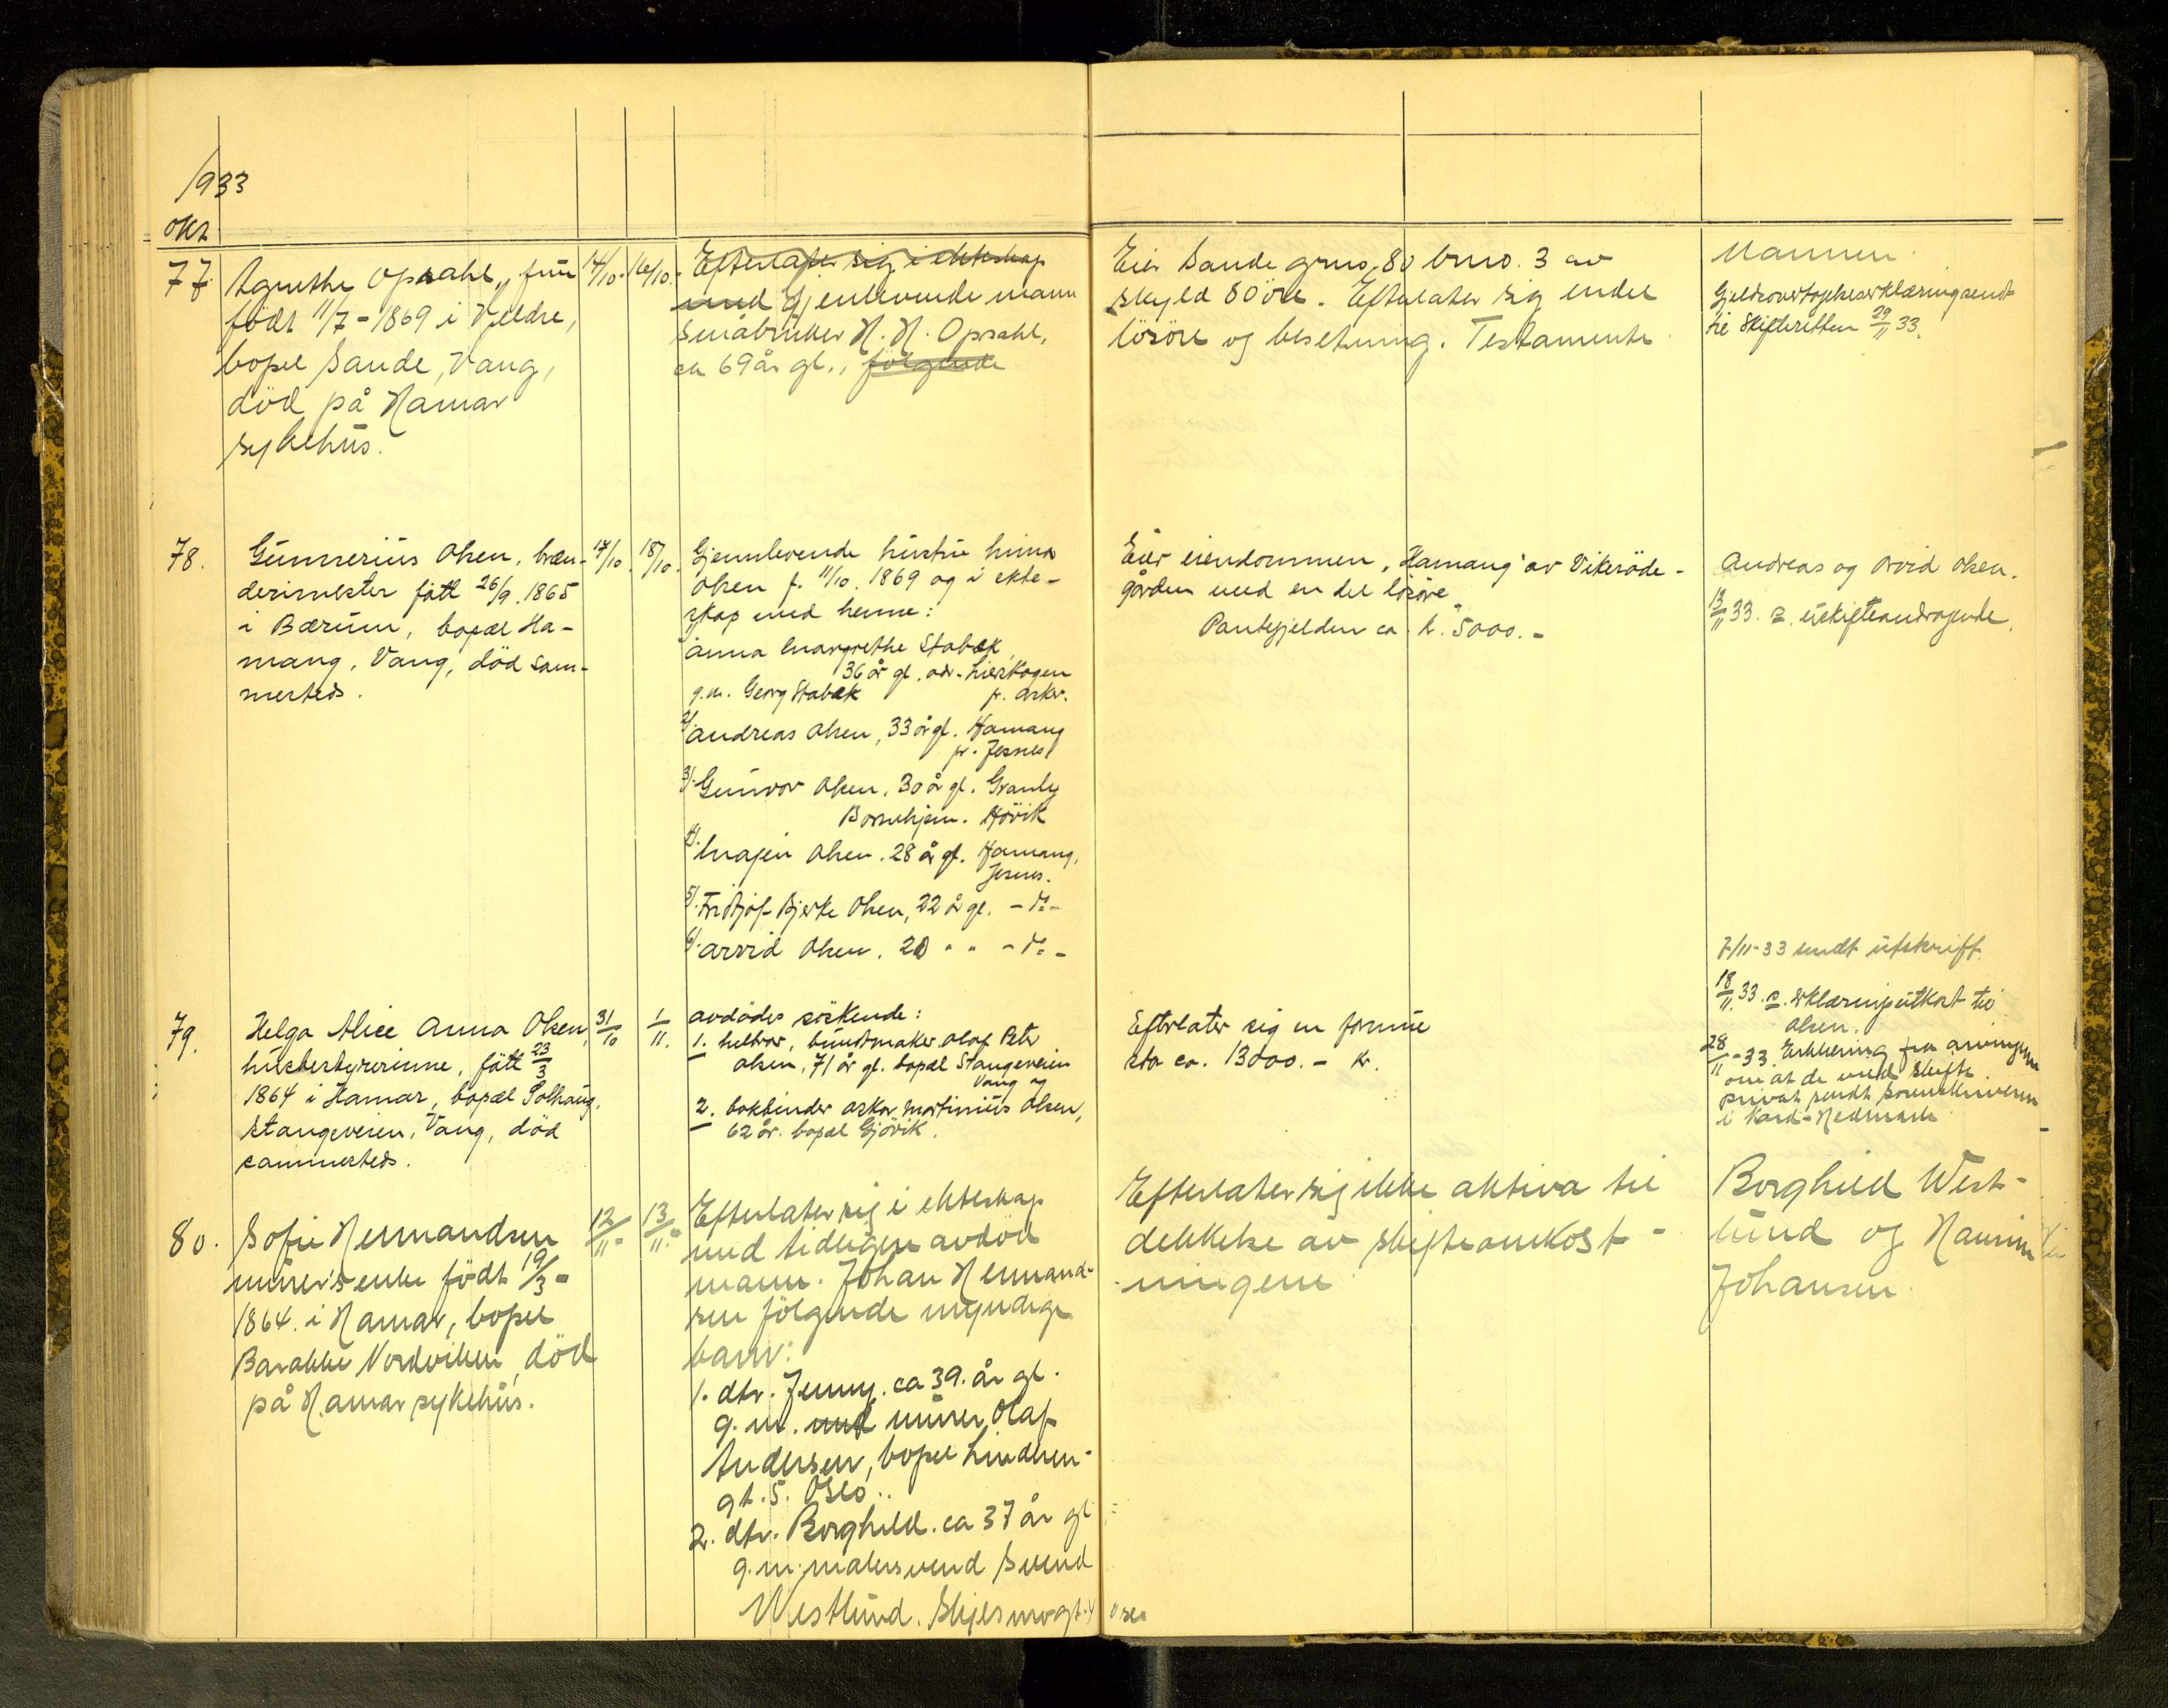 1933
Okt
77. Agnethe Opsahl, frue
født 11/7-1869 i Veldre,
bopel Sande, Vang,
död på Hamar
sykehus.
14/10. 16/10.
Efterlater sig i ekteskap
med Gjenlevende mann
Småbruker H. H. Opsahl,
ca 69 år gl., følgende
Eier Sande grno, 80 brno. 3 av
skyld 80 öre. Efterlater sig endel
lösöre og besetning. Testamente
Mannen
Gjeldsovertagelseserklæring sendt
til Skifteretten 29/11 33.
78. Gunnerius Olsen, bræn-
derimester født 26/9. 1865
i Bærum, bopæl Ha-
mang, Vang, död sam-
mesteds.
14/10. 18/10.
Gjenlevende hustru
Olsen f. 11/10. 1869 og i ekte-
skap med henne:
Anna Margrethe Stabæk,
36 år gl. adr. Lierskogen
g.m. Georg Stabæk pr. Asker.
2/ Andreas Olsen, 33 år gl. Hamang
pr. Jessnes
3/ Gunvor Olsen, 30 år gl. Granly
Barnehjem. Hövik
4/ Magen Olsen. 28 år gl. Hamang,
Jesnes.
5/ Fridtjof Bjerke Olsen, 22 år gl. - do -
6/ Arvid Olsen. 20 " " - do -
Eier eiendommen "Hamang" av Vikeröde-
gården med en del lösöre
Pantegjelden ca. k. 5000.-
Andreas og Arvid Olsen.
13/11 33. s. uskifteandragende.
7/11-33 sendt utskrift.
79. Helga Alice Anna Olsen,
husbestyrerinne, født 23/3
1864 i Hamar, bopæl Solhaug,
Stangeveien, Vang, död
sammesteds.
31/10 1/11.
avdödes söskende:
1. helbror, buntmaker Olaf Petr
Olsen, 71 år gl. bopæl Stangeveien
Vang og
2. bokbinder Oskar Martinius Olsen,
62 år. bopæl Gjövik.
Efterlater sig en formue
stor ca. 13000.- kr.
18/11. 33. s. erklæringsutkast til
Olsen.
28/11-33. Erklæring fra arvingene
om at de vil skifte
privat sendt sorenskriveren
i Nord-Hedmark
80. Sofie Hermandsen
murer's enke født 19/3-
1864. i Hamar, bopel
Barakke Nordviken, död
på Hamar sykehus.
12/11- 13/11-
Efterlater sig i ekteskap
med tidligere avdöd
mann. Johan Hermand-
sen fölgende myndige
barn:
1. dtr. Jenny. ca 39. år gl.
g.m. med murer Olaf
Andersen, bopel Lindern-
gt. 5. Oslo..
2. dtr. Borghild. ca 37 år gl
g.m. malersvend Svend
Westlund. Oslo
Efterlater sig ikke aktiva til
dekkelse av skifteomkost-
ningene
Borghild West-
lund og
Johansen